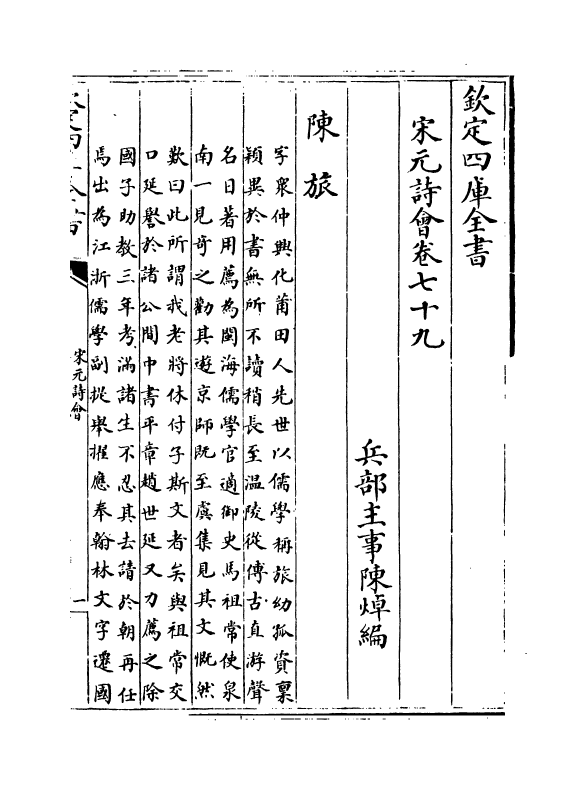 欽定四庫全書
宋元詩會卷七十九
兵部主事陳焯編
陳旅
字衆仲興化莆田人先世以儒學稱旅幼孤資禀
穎異於書無所不讀稍長至温陵從傅古直游聲
名日著用薦為閩海儒學官適御史馬祖常使泉
南一見奇之勸其遊京師既至虞集見其文慨然
歎曰此所謂我老將休付子斯文者矣與祖常交
口延譽於諸公間中書平章趙世延又力薦之除
國子助教三年考滿諸生不忍其去請於朝再任
焉出為江浙儒學副提舉擢應奉翰林文字遷國
宋元詩會
一